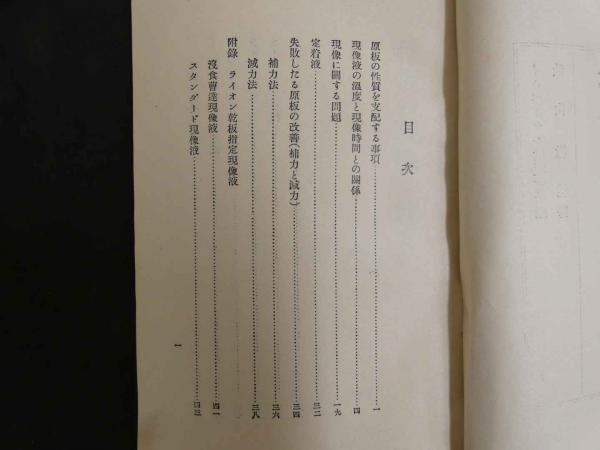 目次
原板の性質を支配する事項 一
現像液の溫度と現像時間との關係 四
現像に關する問題 一九
定着液 三二
失敗したる原板の改善(補力と減力) 三四
補力法 三六
減力法 三八
附錄 ライオン乾板指定現像液
沒食曹達現像液 四一
スタンダード現像液 四三
一